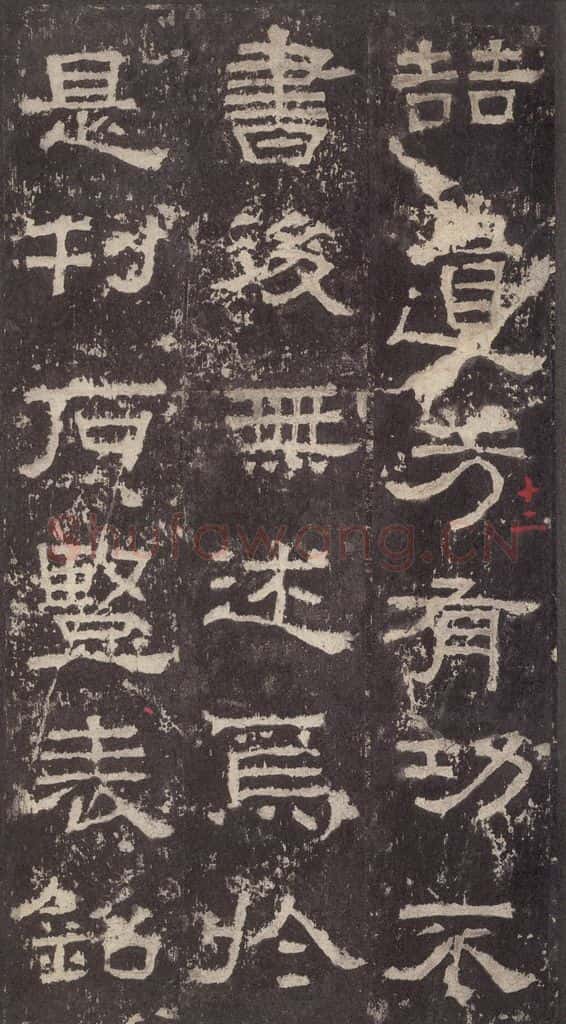 喆遺芳有功不
書後無述焉於
是刊石竪表銘
十二
Shufawang.CN